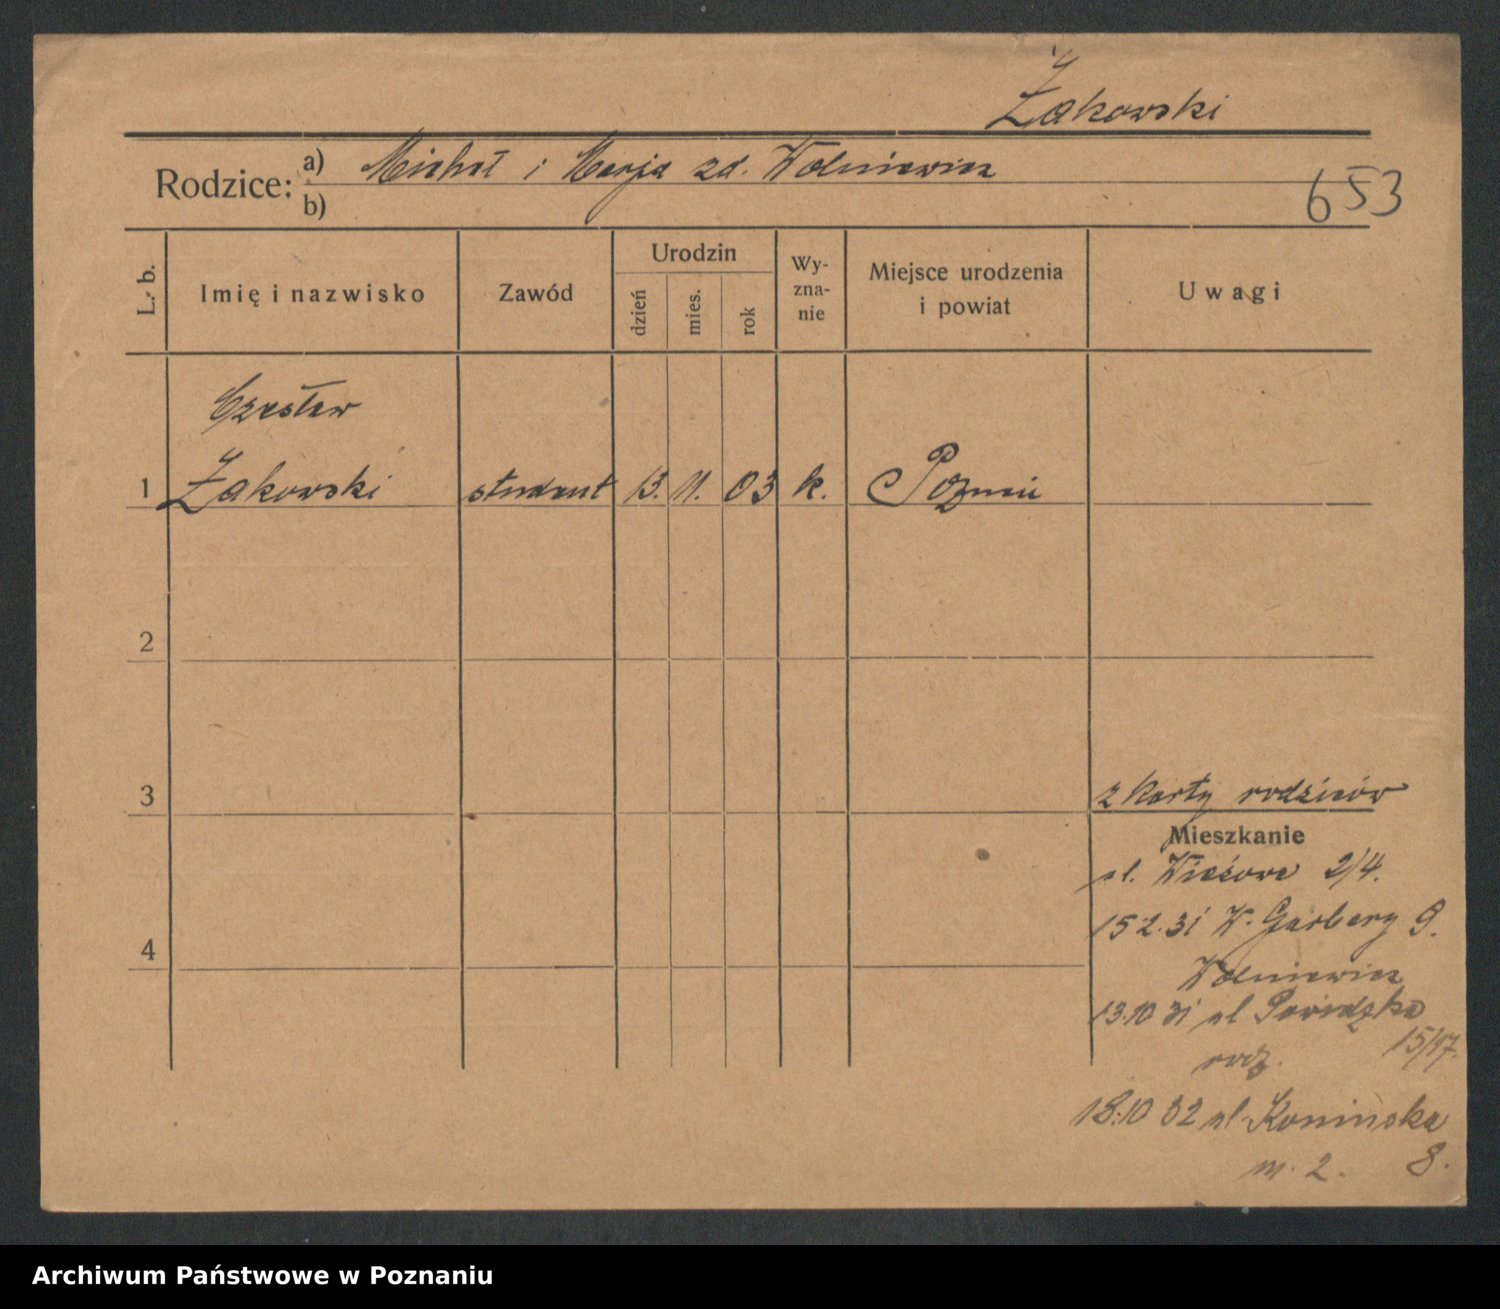 Żakowski
Rodzice: a) Michał i Marja zd. Wolniewicz
b)
653
L. b.
Imię i nazwisko
Zawód
Urodzin
dzień
mies.
rok
Wy-
zna-
nie
Miejsce urodzenia
i powiat
Uwagi
Czesław
1 Żakowski student 13. 11. 03 k. Poznań
2
3
z karty rodziców
Mieszkanie
ul. Wieżowa 2/4.
15 2. 31 W. Garbary 9.
4
Wolniewicz
13.10 31 ul Powidzka
15/17.
rodz.
18.10 32 ul Konińska
m. 2. 8.
Archiwum Państwowe w Poznaniu